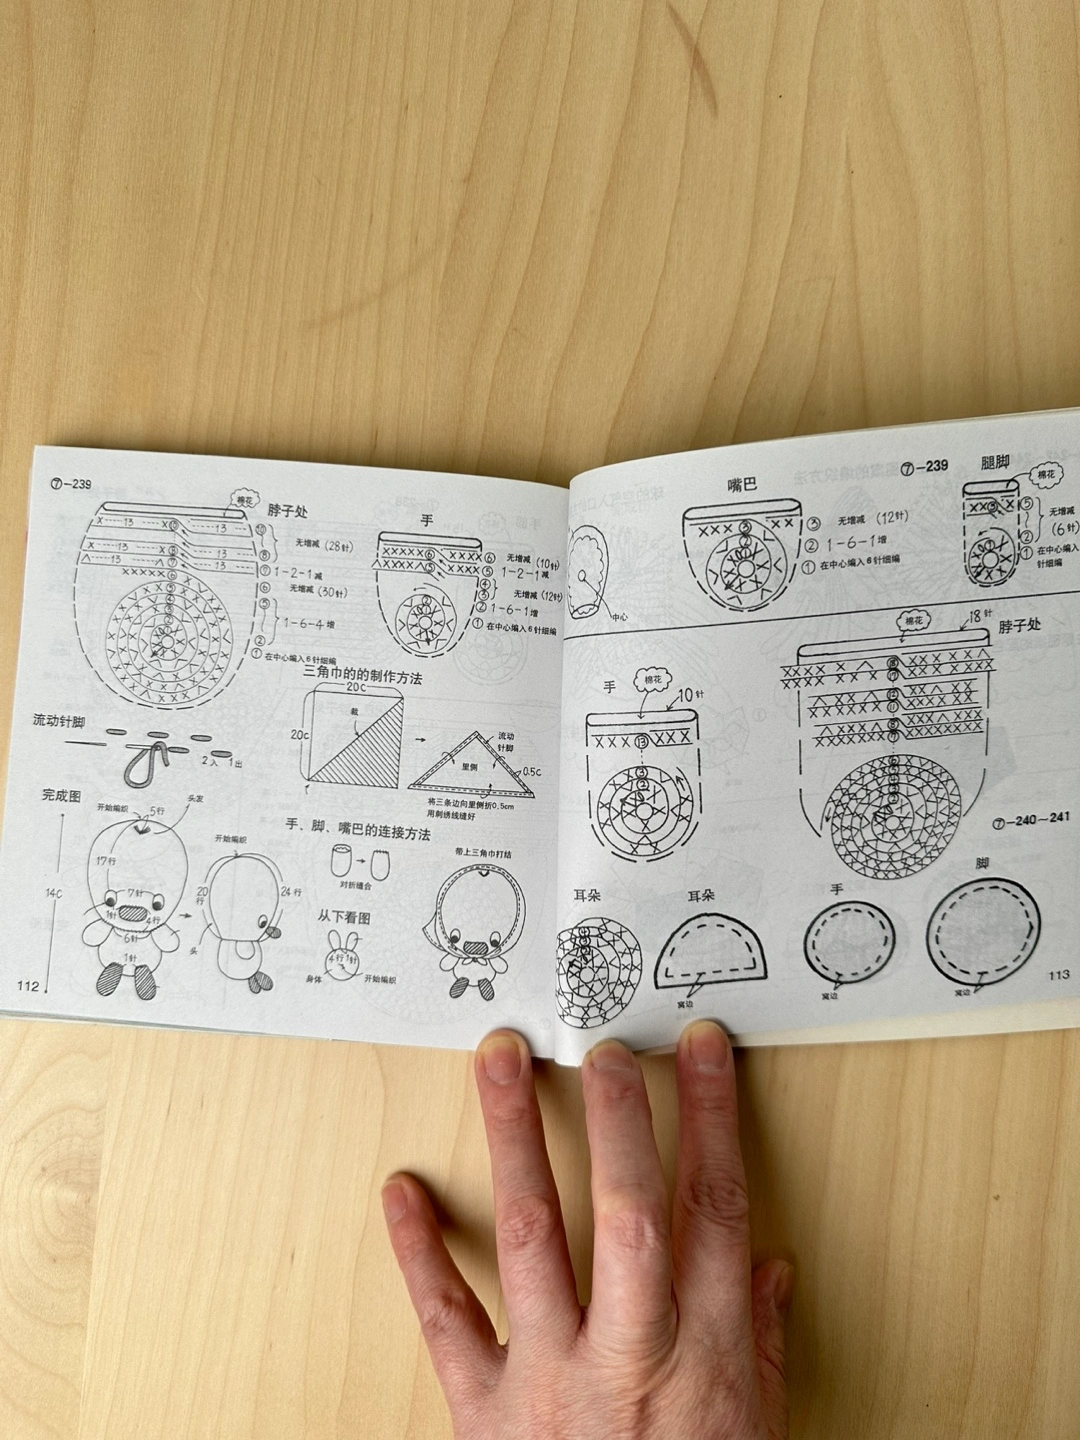 ⑦-239
棉花
脖子处
13 x 13
⑩
⑧
无增减(28针)
x 13 13
⑦ 1-2-1减
⑥ 无增减(30针)
⑤
②
1-6-4增
① 在中心编入6针细编
手
⑥ 无增减(10针)
⑤ 1-2-1减
④
③
无增减(12针)
② 1-6-1增
① 在中心编入6针细编
三角巾的的制作方法
20c
20c
裁
里侧
流动
针脚
0.5c
将三条边向里侧折0.5cm
用刺绣线缝好
流动针脚
2入 1出
完成图
开始编织
5行
头发
17行
7针
1针
4行
6针
1针
14c
开始编织
20行
24行
头
手、脚、嘴巴的连接方法
对折缝合
从下看图
4行1针
身体
开始编织
带上三角巾打结
112
⑦-239
中心
嘴巴
③ 无增减(12针)
② 1-6-1增
① 在中心编入6针细编
腿脚
棉花
⑤
②
无增减
(6针)
① 在中心编入
针细编
手
棉花
10针
⑬
棉花
18针
脖子处
⑦-240～241
耳朵
耳朵
窝边
手
窝边
脚
窝边
113